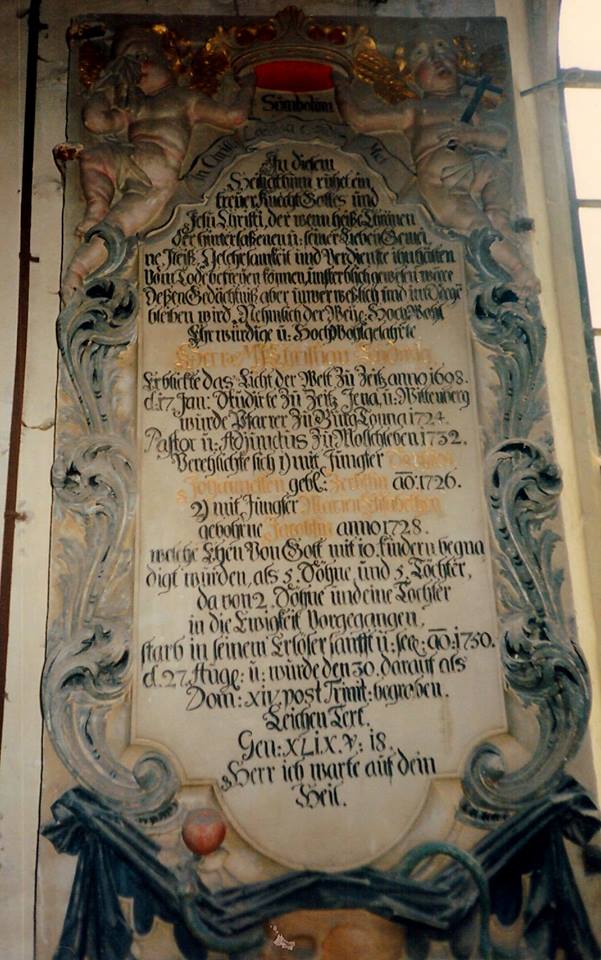 Sÿmbolum
In diesem
Heiligthum ruhet ein
treuer Knecht Gottes und
Jesu Christi, der wenn heiße Thränen
der hinterlaßenen u: seiner Lieben Gemei,
ne Fleiß, Gelehrsamkeit und Verdienste ihn hätten
Vom Tode befreyen können, unsterblich geweßen wäre
Deßen Gedächtniß aber unverweßlich und im Seegē
bleiben wird, Nehmlich der Weÿl: Hoch Wohl
Ehrwürdige u: HochWohlgelahrte
Herr M. Christian Ludwig
Erblickte das Licht der Welt Zu Zeitz anno 1698.
d. 17 Jan: Studirte Zu Zeitz Jena, u: Wittenberg
wurde Pfarrer Zu Burg Tonna 1724.
Pastor u: Adjunctus Zu Molschleben 1732.
Verehlichte sich 1) mit Jungfer
Johannetten gebl: aō: 1726.
2) mit Jungfer Marien Elisabethen
gebohrne Jacobin anno 1728.
welche Ehen Von Gott mit 10. Kindern begna
digt wurden, als 5. Söhne, und 5. Töchter,
da von 2. Söhne und eine Tochter
in die Ewigkeit Vorgegangen,
starb in seinem Erlöser sanfft u: seel: aō: 1750.
d. 27. Aug: u: wurde den 30. darauf als
Dom: XIV post Trinit: begraben.
Leichen Text.
Gen: XLIX. V: 18.
Herr ich warte auf dein
Heil.